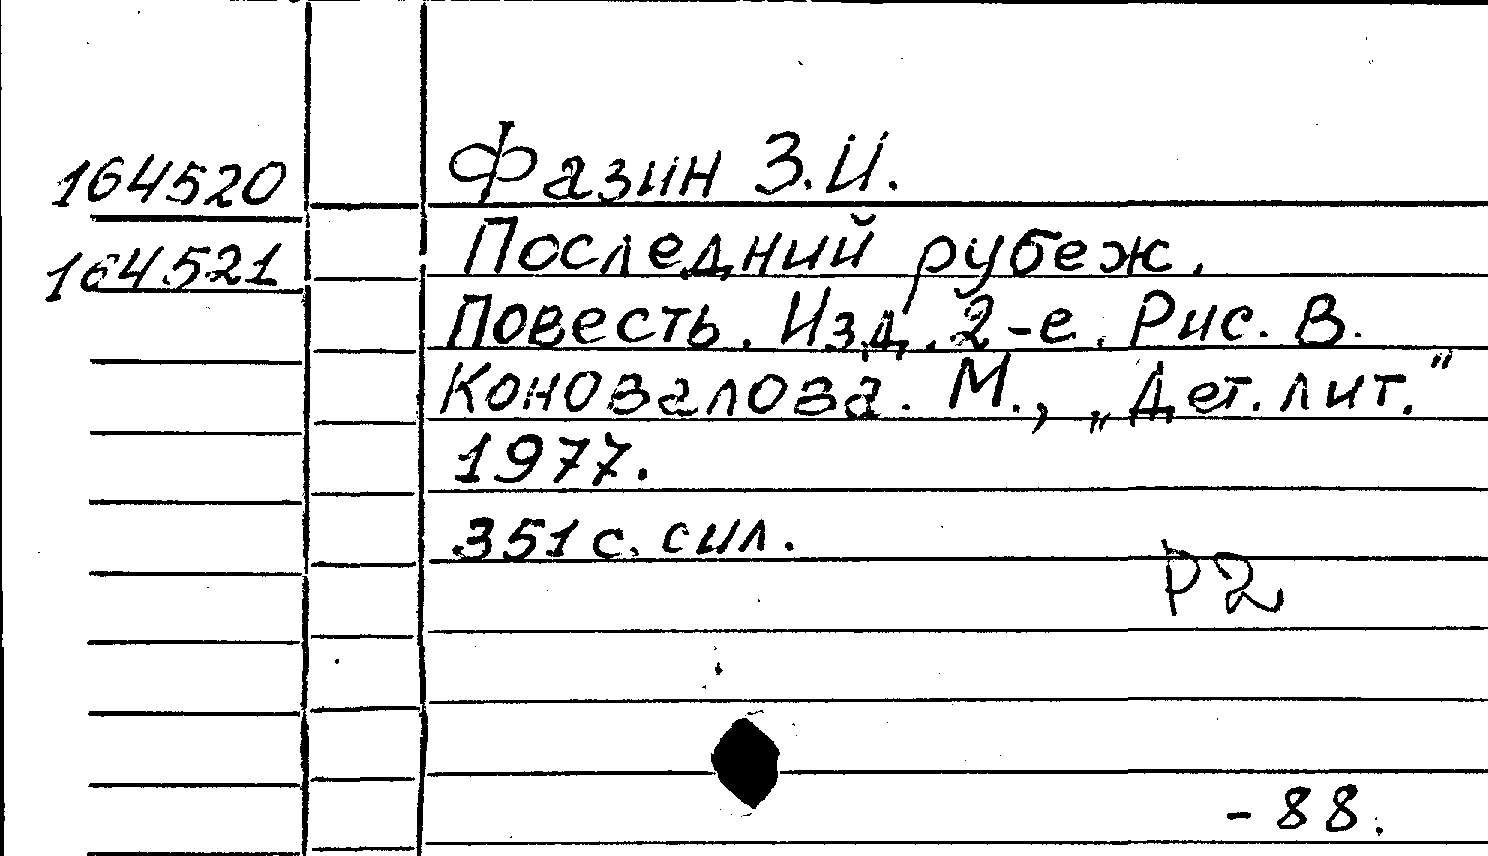 164520 Фазин З.И.
164521 Последний рубеж.
Повесть. Изд. 2-е. Рис. В.
Коновалова. М., „Дет. лит."
1977.
351 с. сил.
Р2
-88.